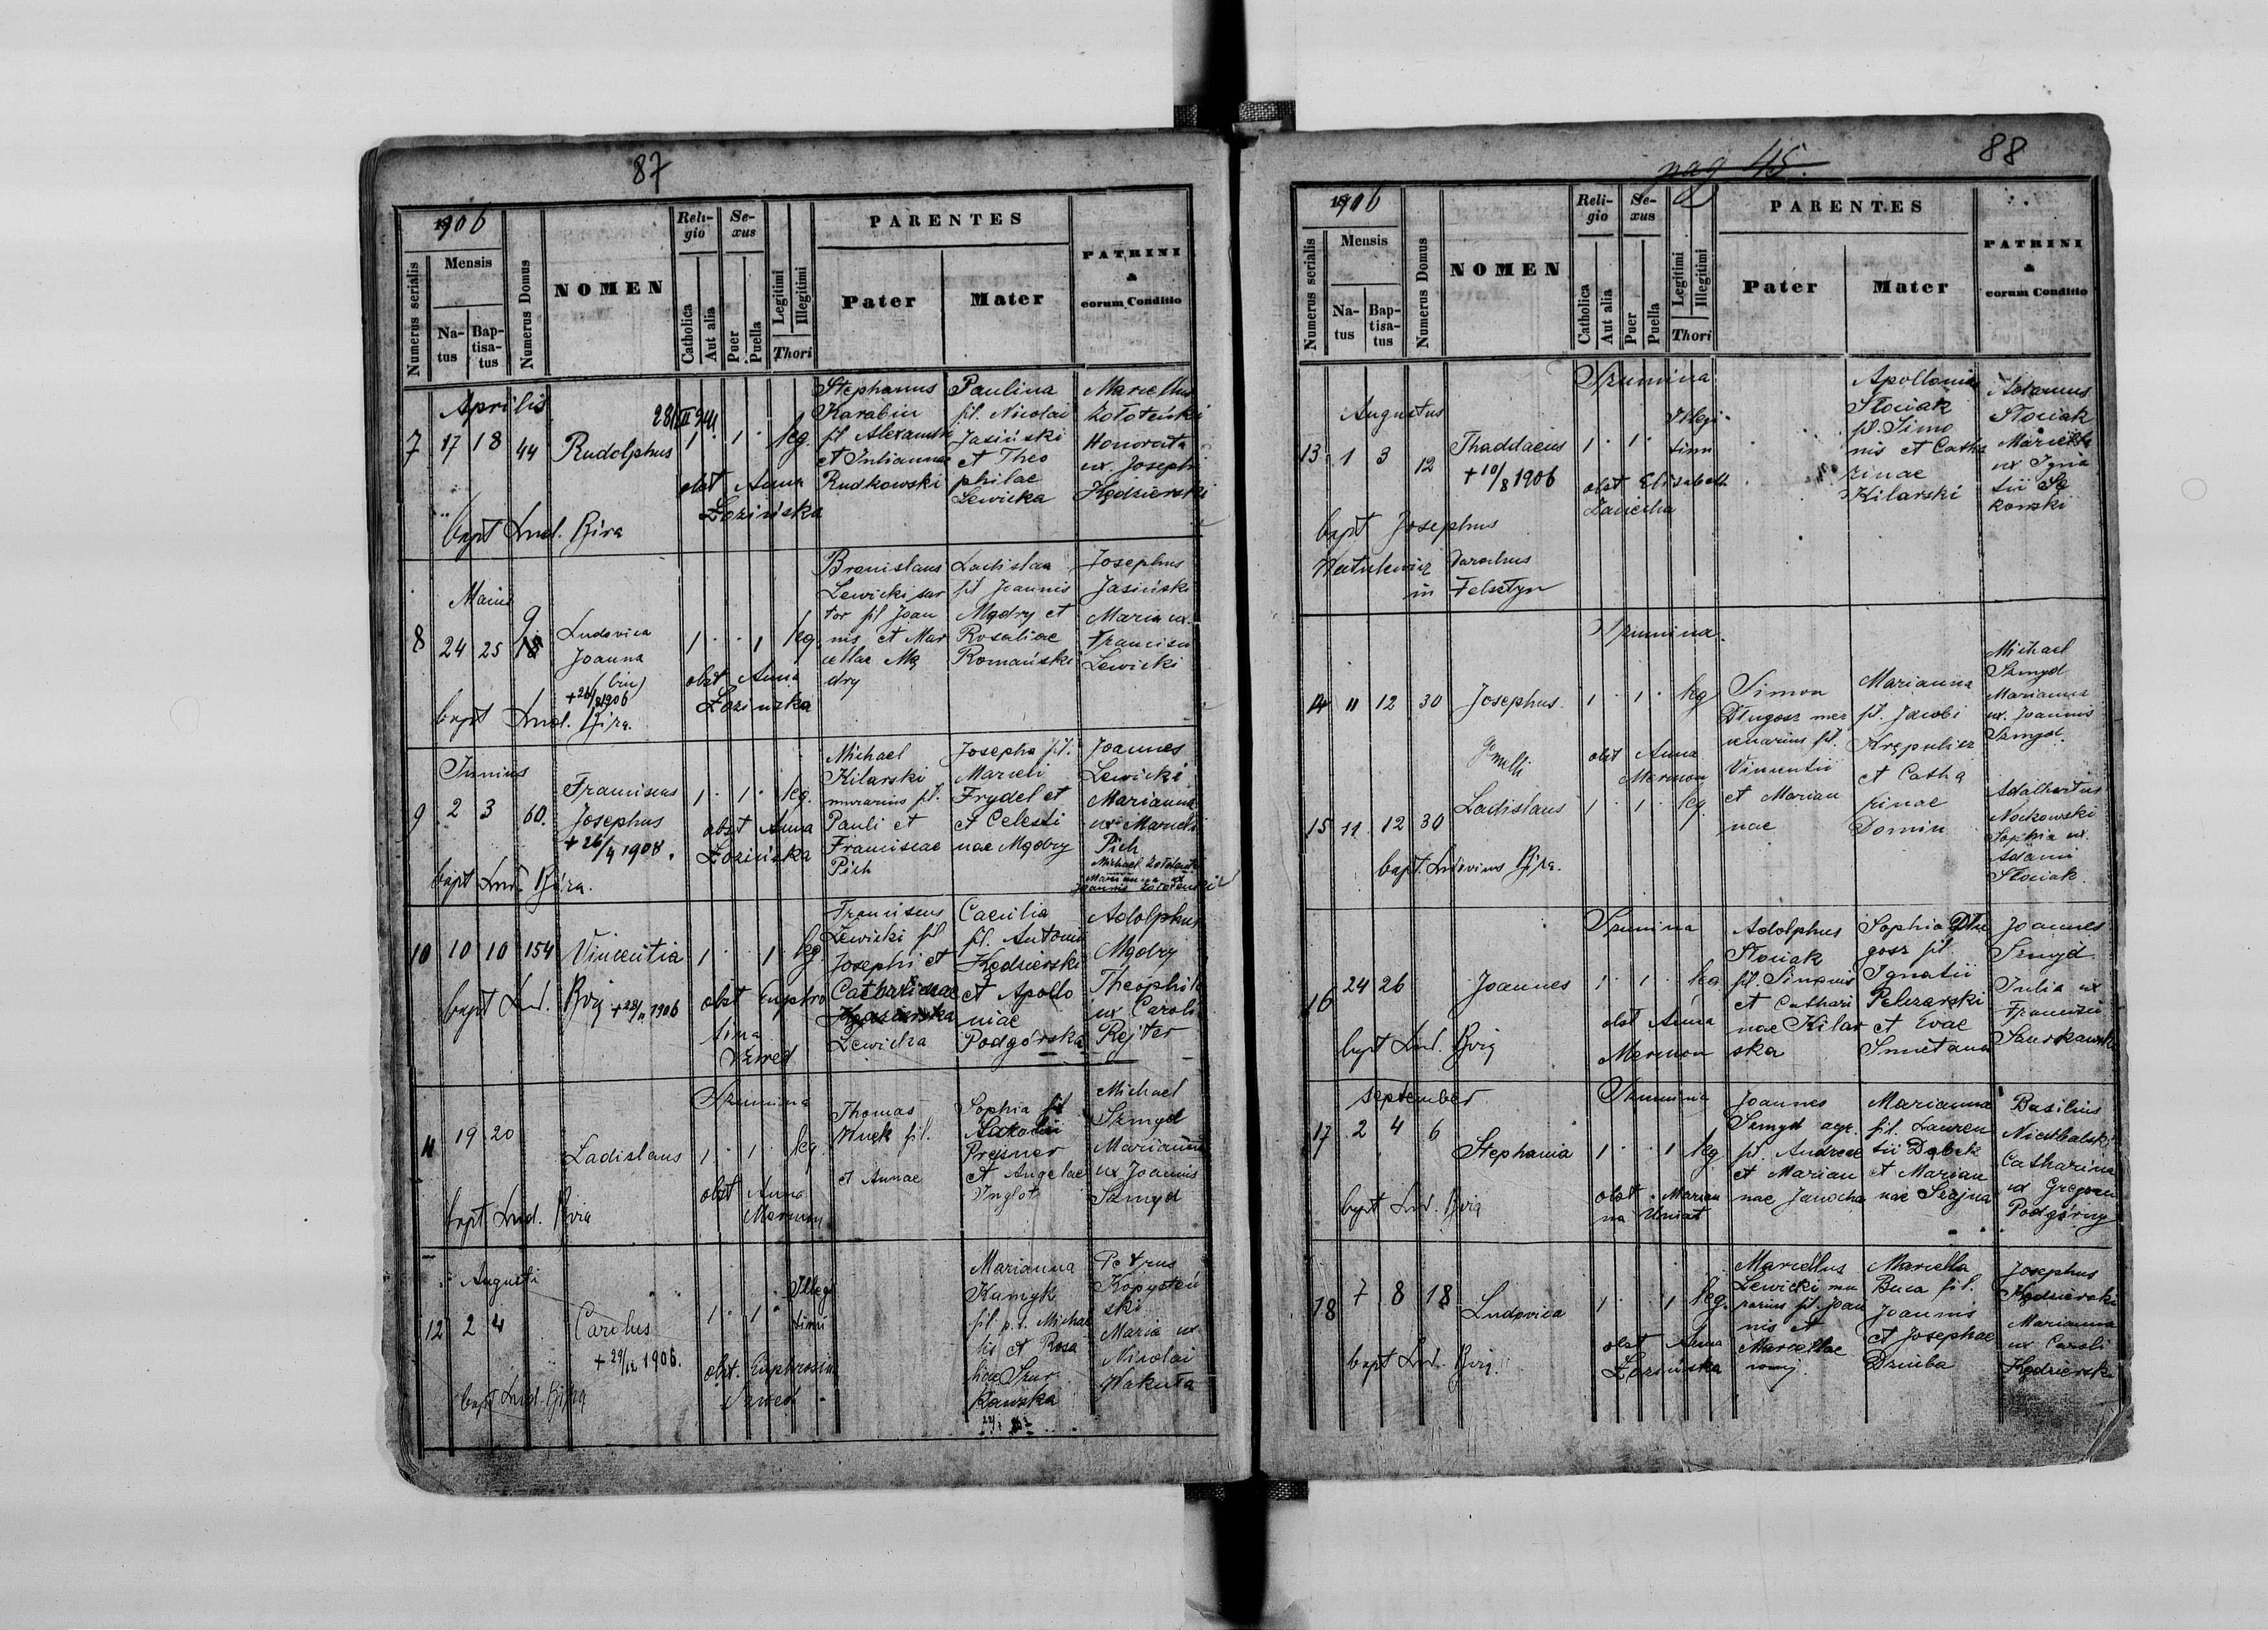 87
1906
Numerus serialis
Mensis
Na-
tus
Bap-
tisa-
tus
Numerus Domus
NOMEN
Reli-
gio
Catholica
Aut alia
Se-
xus
Puer
Puella
Legitimi
Illegitimi
Thori
PARENTES
Pater
Mater
PATRINI
&
eorum Conditio
Aprilis
7 17 18 44 Rudolphus 1 1 leg.
Stephanus
Karabin
fil Alexandri
et Julianna
Rudkowski
Paulina
fil. Nicolai
Jasiński
et Theo
philae
Lewicka
Marcellus
Zołoteński
Honorata
ux. Josephi
Kędzierski
obst Anna
Łozińska
bapt Lud. Bira
Maius
8 24 25 9
Ludovica
Joanna
+26/8 1906
1 1 leg.
Bronislaus
Lewicki sar
tor fil Joan
nis et Mar
cellae Mą
dry
Ladislaa
fil Joannis
Mądry et
Rosaliae
Romański
Josephus
Jasiński
Maria ux.
Francisci
Lewicki
obst Anna
Łozinska
bapt Lud. Bira.
Junius
9 2 3 60.
Franciscus
Josephus
+26/4 1908.
1 1 leg.
Michael
Kilarski
murarius fil.
Pauli et
Franciscae
Pich
Josepha fil.
Marceli
Frydel et
et Celesti
nae Mądry
Joannes
Lewicki
Marianna
ux Marceli
Pich
Michael
Marianna ux
Joannis Zołoteński
obst Anna
Łozińska
bapt Lud. Bira.
10 10 10 154 Vincentia 1 1 leg
Franciscus
Lewicki fil
Josephi et
Catharinae
Lewicka
Caecilia
fil. Antonii
Kędzierski
et Apollo
niae
Podgórska
Adolphus
Mądry
Theophila
ux Caroli
Rejter
obst Euphro
sina
Szwed
bapt Lud. Bira +28/11 1906
Szumina
11 19 20 Ladislaus 1 1 leg
Thomas
Kuęk fil.
et Annae
Sophia fil
Prejsner
et Angelae
Inglot
Michael
Szmyd
Marianna
ux Joannis
Szmyd
obst Anna
Mermon
bapt Lud. Bira
Augusti
12 2 4 Carolus 1 1
Illegi
timi
+29/12 1906.
Marianna
Kamyk
fil. p. t. Michae
lis et Rosa
liae Szur
kawska
Petrus
Kopysteń
ski
Maria ux
Nicolai
Wakuta
obst. Euphrosina
Szwed
bapt Lud. Bira
pag 45.
88
1906
Numerus serialis
Mensis
Na-
tus
Bap-
tisa-
tus
Numerus Domus
NOMEN
Reli-
gio
Catholica
Aut alia
Se-
xus
Puer
Puella
Legitimi
Illegitimi
Thori
PARENTES
Pater
Mater
PATRINI
&
eorum Conditio
Augustus
Szumina
13 1 3 12 Thaddaeus 1 1
Illegi
timi
+10/8 1906
Apollonia
Słociak
fil. Simo
nis et Catha
rinae
Kilarski
Adamus
Słociak
Marcella
ux Igna
tii
kowski
obst Elisabeth
bapt Josephus
Watulewicz Parochus
in Felsztyn
Szumina.
14 11 12 30 Josephus. 1 1 leg
Gemelli
15 11 12 30 Ladislaus 1 1 leg
Simon
Długosz mer
cenarius fil.
Vincentii
et Marian
nae
Marianna
fil. Jacobi
Krępulicz
et Catha
rinae
Domin
Michael
Szmyd
Marianna
ux. Joannis
Szmyd.
Adalbertus
Noikowski
Sophia ux.
Adami
Słociak.
obst Anna
Mermon
bapt. Ludovicus Bira.
Szumina
16 24 26 Joannes 1 1 leg.
Adolphus
Słociak
fil. Simonis
et Cathari
nae Kilar
ska
Sophia Dłu
gosz fil.
Ignatii
Pelczarski
et Evae
Smietana
Joannes
Szmyd
Julia ux
Francisci
Szurkawski
obst Anna
Mermon
bapt Lud. Bira
September
Szumina
17 2 4 6 Stephania 1 1 leg
Joannes
Szmyd agr.
fil. Andreae
et Marian
nae Janocha
Marianna
fil. Lauren
tii Dąbek
et Marian
nae Szajna
Basilius
Niedbalski
Catharina
ux Gregorii
Podgórny
obst Marian
na Uniat
bapt Lud. Bira
18 7 8 18 Ludovica 1 1 leg.
Marcellus
Lewicki mu
rarius fil. Joan
nis et
Marcellae
Marcella
Buca fil.
Joannis
et Josephae
Dziuba
Josephus
Kędzierski
Marianna
ux Caroli
Kędzierski
obst Anna
Łozińska
bapt Lud. Bira.